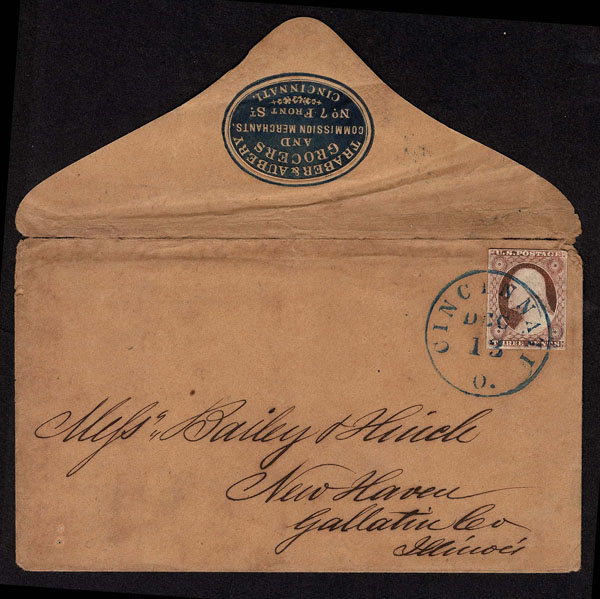 TRABER & AUBERY,
GROCERS
AND
COMMISSION MERCHANTS.
No. 7 FRONT ST.
CINCINNATI.
U.S. POSTAGE
THREE CENTS
CINCINNATI
DEC
13
O.
Messrs Bailey & Hinch
New Haven
Gallatin Co
Illinois